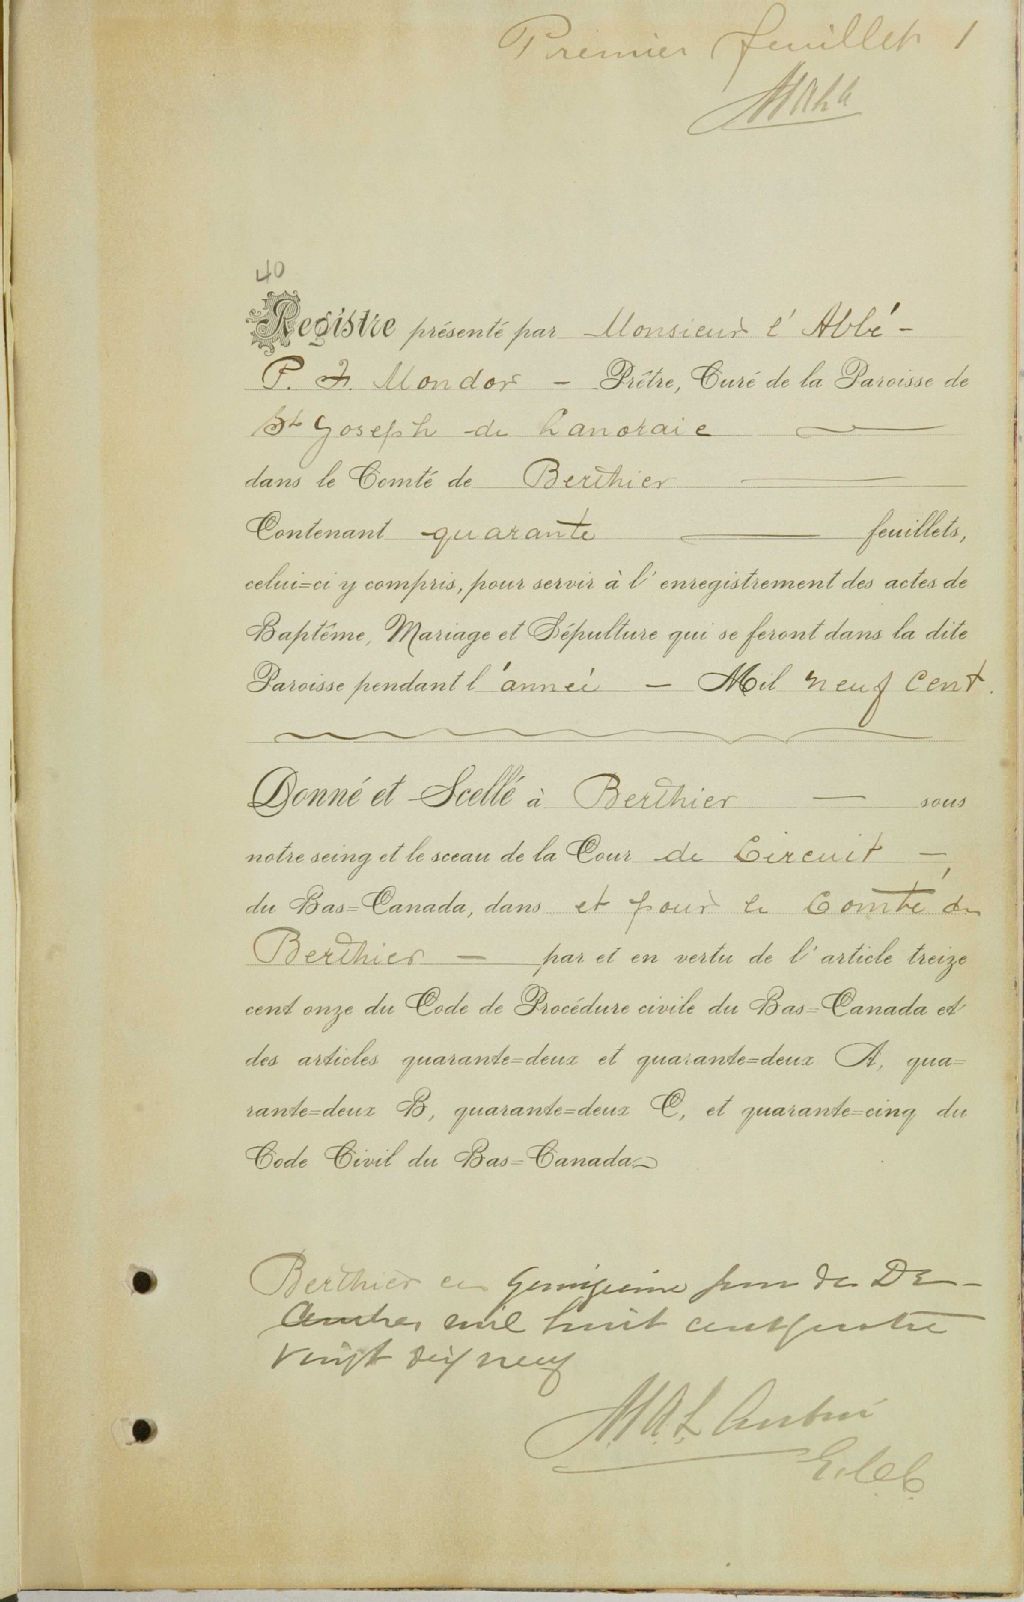 Premier feuillet 1
40
Registre présenté par Monsieur l'Abbé -
P. F. Mondor - Prêtre, Curé de la Paroisse de
St Joseph de Lanoraie
dans le Comté de Berthier
Contenant quarante feuillets,
celui=ci y compris, pour servir à l'enregistrement des actes de
Baptême, Mariage et Sépulture qui se feront dans la dite
Paroisse pendant l'année - Mil neuf cent.
Donné et Scellé à Berthier - sous
notre seing et le sceau de la Cour de Circuit -
du Bas=Canada, dans et pour le Comté de
Berthier - par et en vertu de l'article treize
cent onze du Code de Procédure civile du Bas=Canada et
des articles quarante=deux et quarante=deux A, qua=
rante=deux B, quarante=deux C, et quarante=cinq du
Code Civil du Bas=Canada.
Berthier ce jour de Dé-
cembre mil huit cent quatre
vingt dix neuf
M.A.L. Aubin